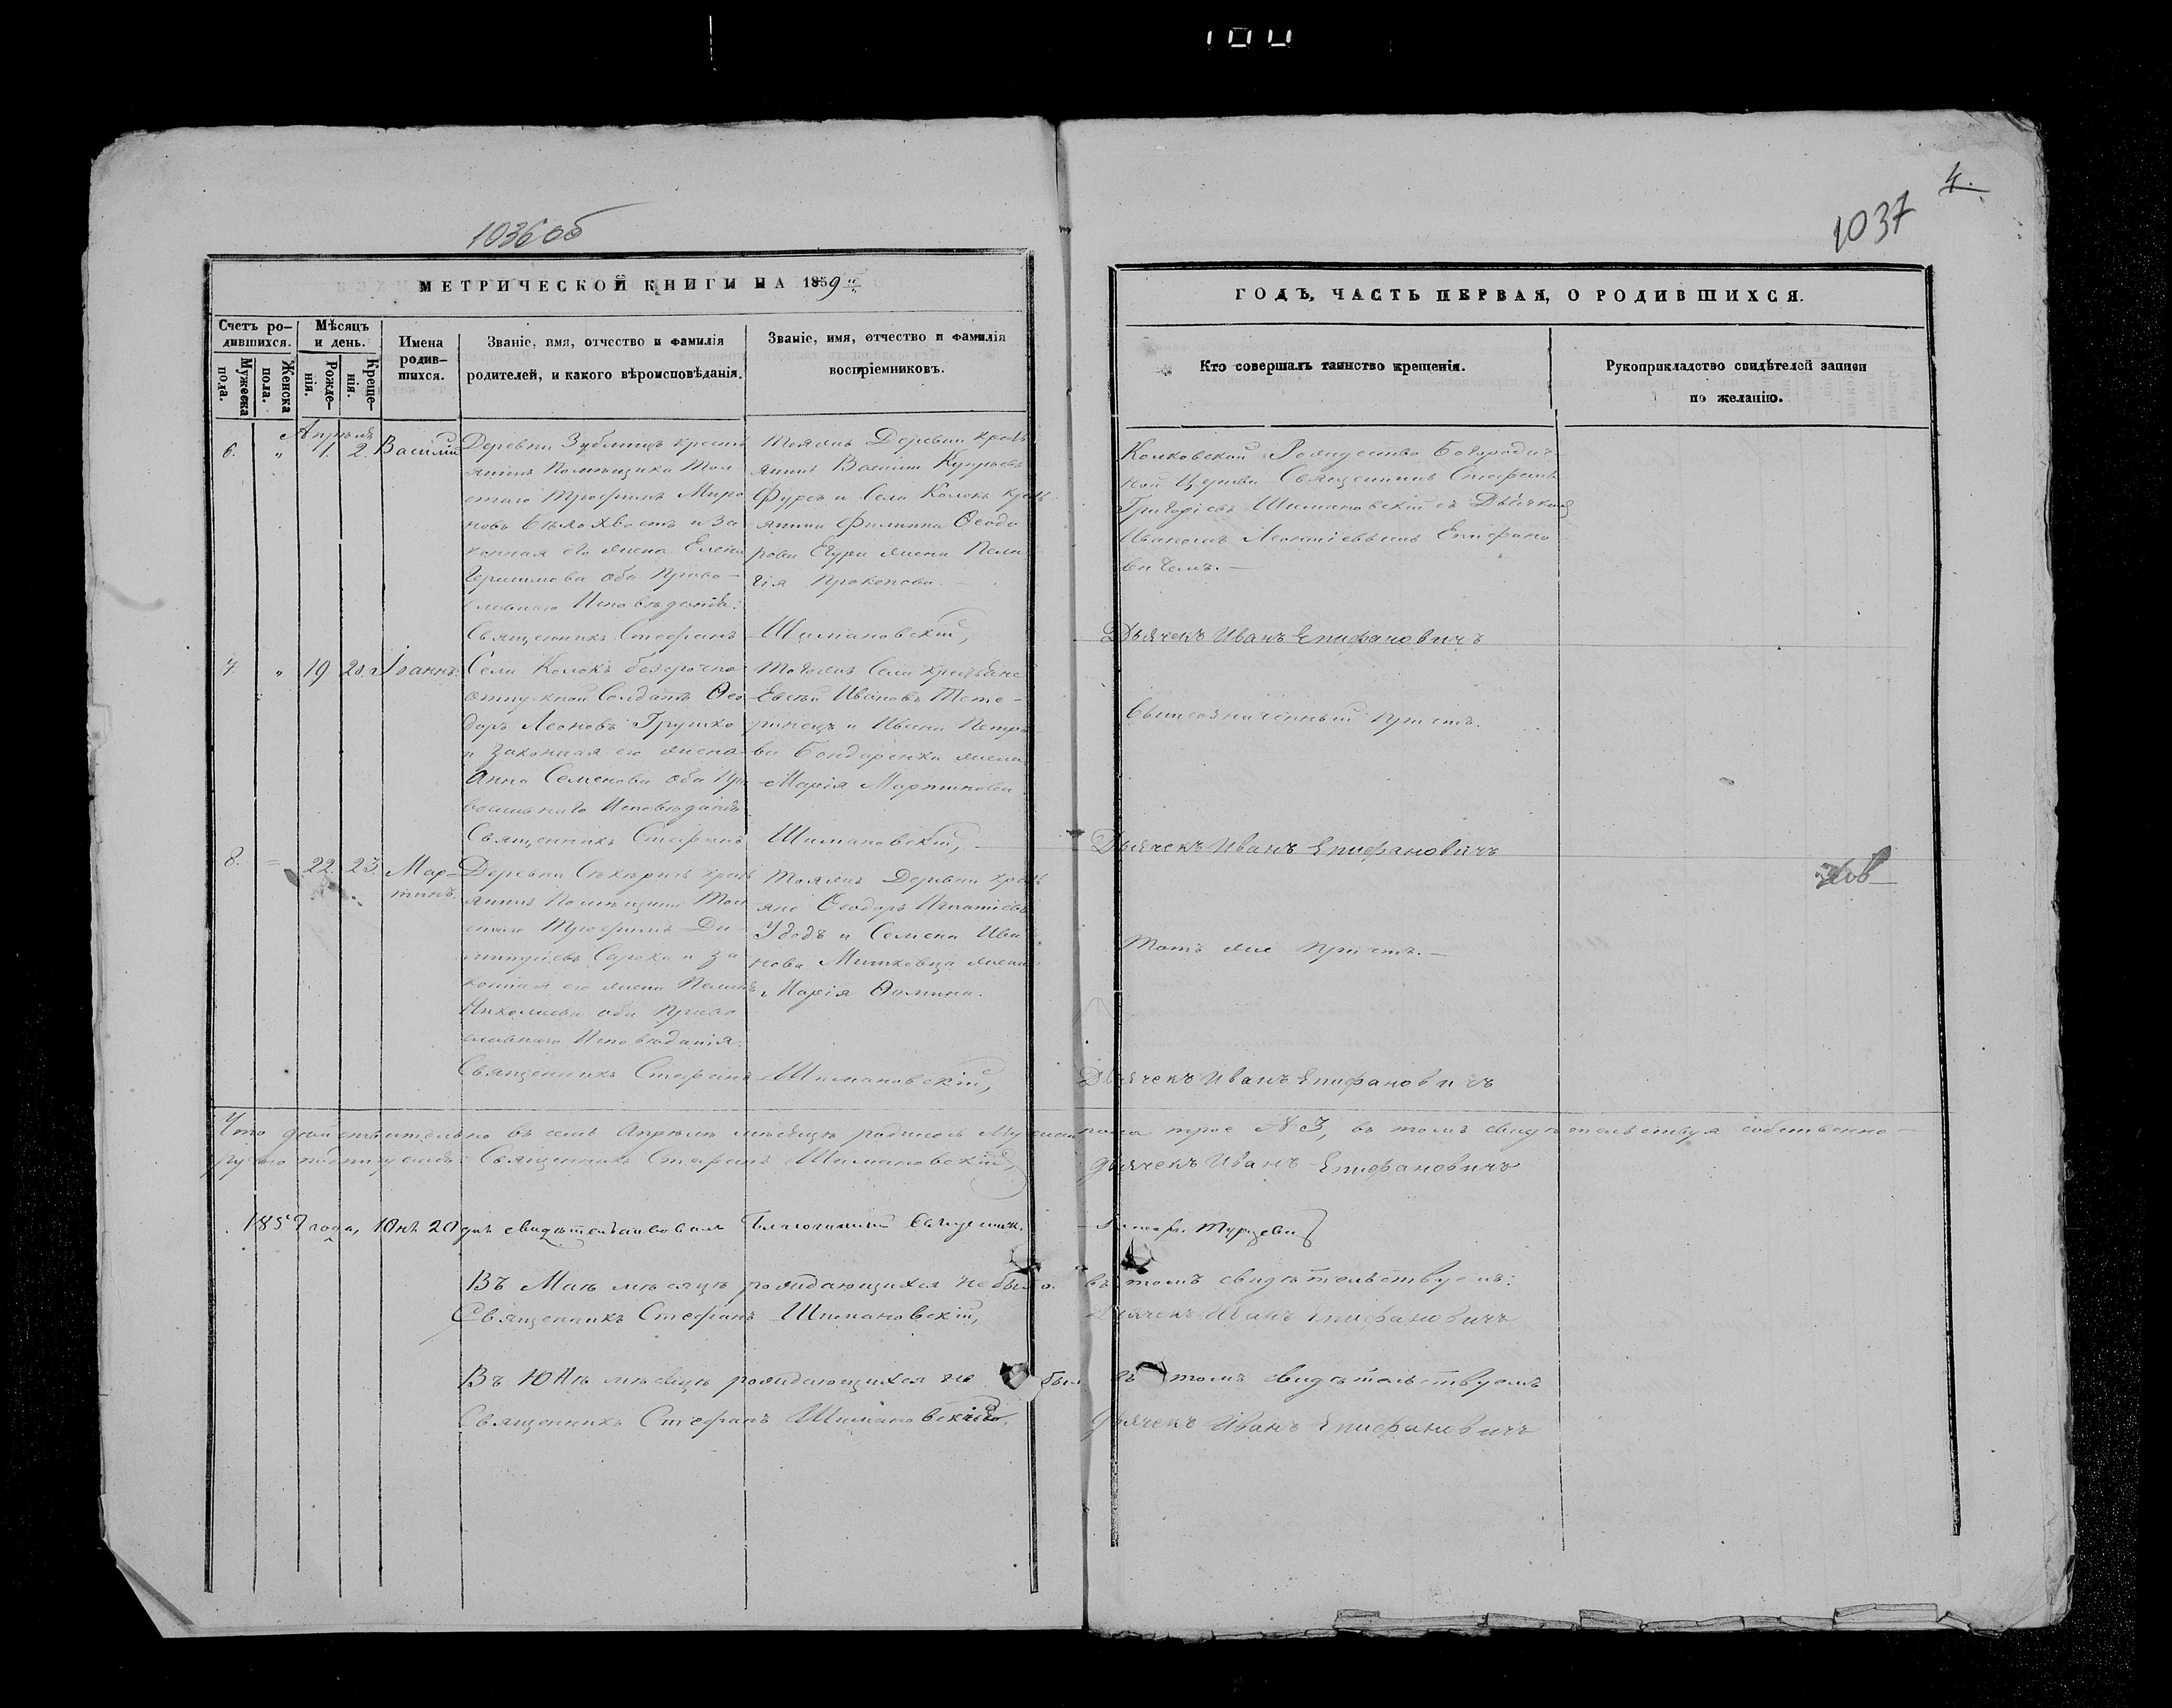 100
4.
1036 об
1037
МЕТРИЧЕСКОЙ КНИГИ НА 1859
ГОДЪ, ЧАСТЬ ПЕРВАЯ, О РОДИВШИХСЯ.
Счетъ ро-
дившихся.
Мужеска
пола.
Женска
пола.
Мѣсяцъ
и день.
Рожде-
нія.
Креще-
нія.
Имена
родив-
шихся.
Званіе, имя, отчество и фамилія
родителей, и какого вѣроисповѣданія.
Званіе, имя, отчество и фамилія
воспріемниковъ.
Кто совершалъ таинство крещенія.
Рукоприкладство свидѣтелей записи
по желанію.
Апрѣля
6. " 1. 2. Василій
Деревни крестья
янинъ Помѣщика Тол
стаго Трофимъ Миро
новъ Бѣлохвостъ и За
конная его жена Елена
Герасимова оба Право-
славнаго Исповѣданія.
Тояже Деревни кресть
янинъ Василій
и Села Колокъ кресть
янина Филиппа Ѳеодо
рова жена Пела
гія Прокопова.
Колковской Рождество Богородич
ной Церкви Священникъ Стефанъ
Григорієвъ Шимановскій съ Дьячкомъ
Иваномъ Леонтіевымъ Епифано
вичемъ.—
Священникъ Стефанъ Шимановскій,
Дьячекъ Иванъ Епифановичъ
7. " 19 20. Іоаннъ.
Села Колокъ безсрочно
отпускной Солдатъ Ѳео
доръ Леоновъ Грушко
и законная его жена
Анна Семенова оба Пра
вославнаго Исповѣданія
Тогожъ Села крестьяне
Евсей Ивановъ Тете-
ринецъ и Ивана Петро
ва Бондаренка жена
Марія Мартинова.
Вышеозначенный Причтъ.
Священникъ Стефанъ Шимановскій,
Дьячекъ Иванъ Епифановичъ
8. = 22. 23. Мар-
тинъ.
Деревни крест
янинъ Помѣщика Тол
стаго Трофимъ Ди-
митріевъ Сорока и За
конная его жена Пелагія
Николаева оба Право
славнаго Исповѣданія.
Тояже Деревни кресть
яне Ѳеодоръ Игнатіевъ
Удодъ и Семена Ива
нова жена
Марія Ѳомина.
Тотъ же Причтъ.—
Священникъ Стефанъ Шимановскій,
Дьячекъ Иванъ Епифановичъ
Что дѣйствительно въ семъ Апрѣлѣ мѣсяцѣ родилось Мужеска пола трое № 3, въ томъ свидѣтельствуя собственно-
ручно подписуемся: Священникъ Стефанъ Шимановскій, Дьячекъ Иванъ Епифановичъ
1859 года, Юнѣ 20 дня свидѣтельствовалъ Благочинный Священник.
Въ Маѣ мѣсяцѣ рождающихся небыло. въ томъ свидѣтельствуемъ:
Священникъ Стефанъ Шимановскій, Дьячекъ Иванъ Епифановичъ
Въ Юнѣ мѣсяцѣ рождающихся не был въ томъ свидѣтельствуемъ
Священникъ Стефанъ Шимановскій, Дьячекъ Иванъ Епифановичъ